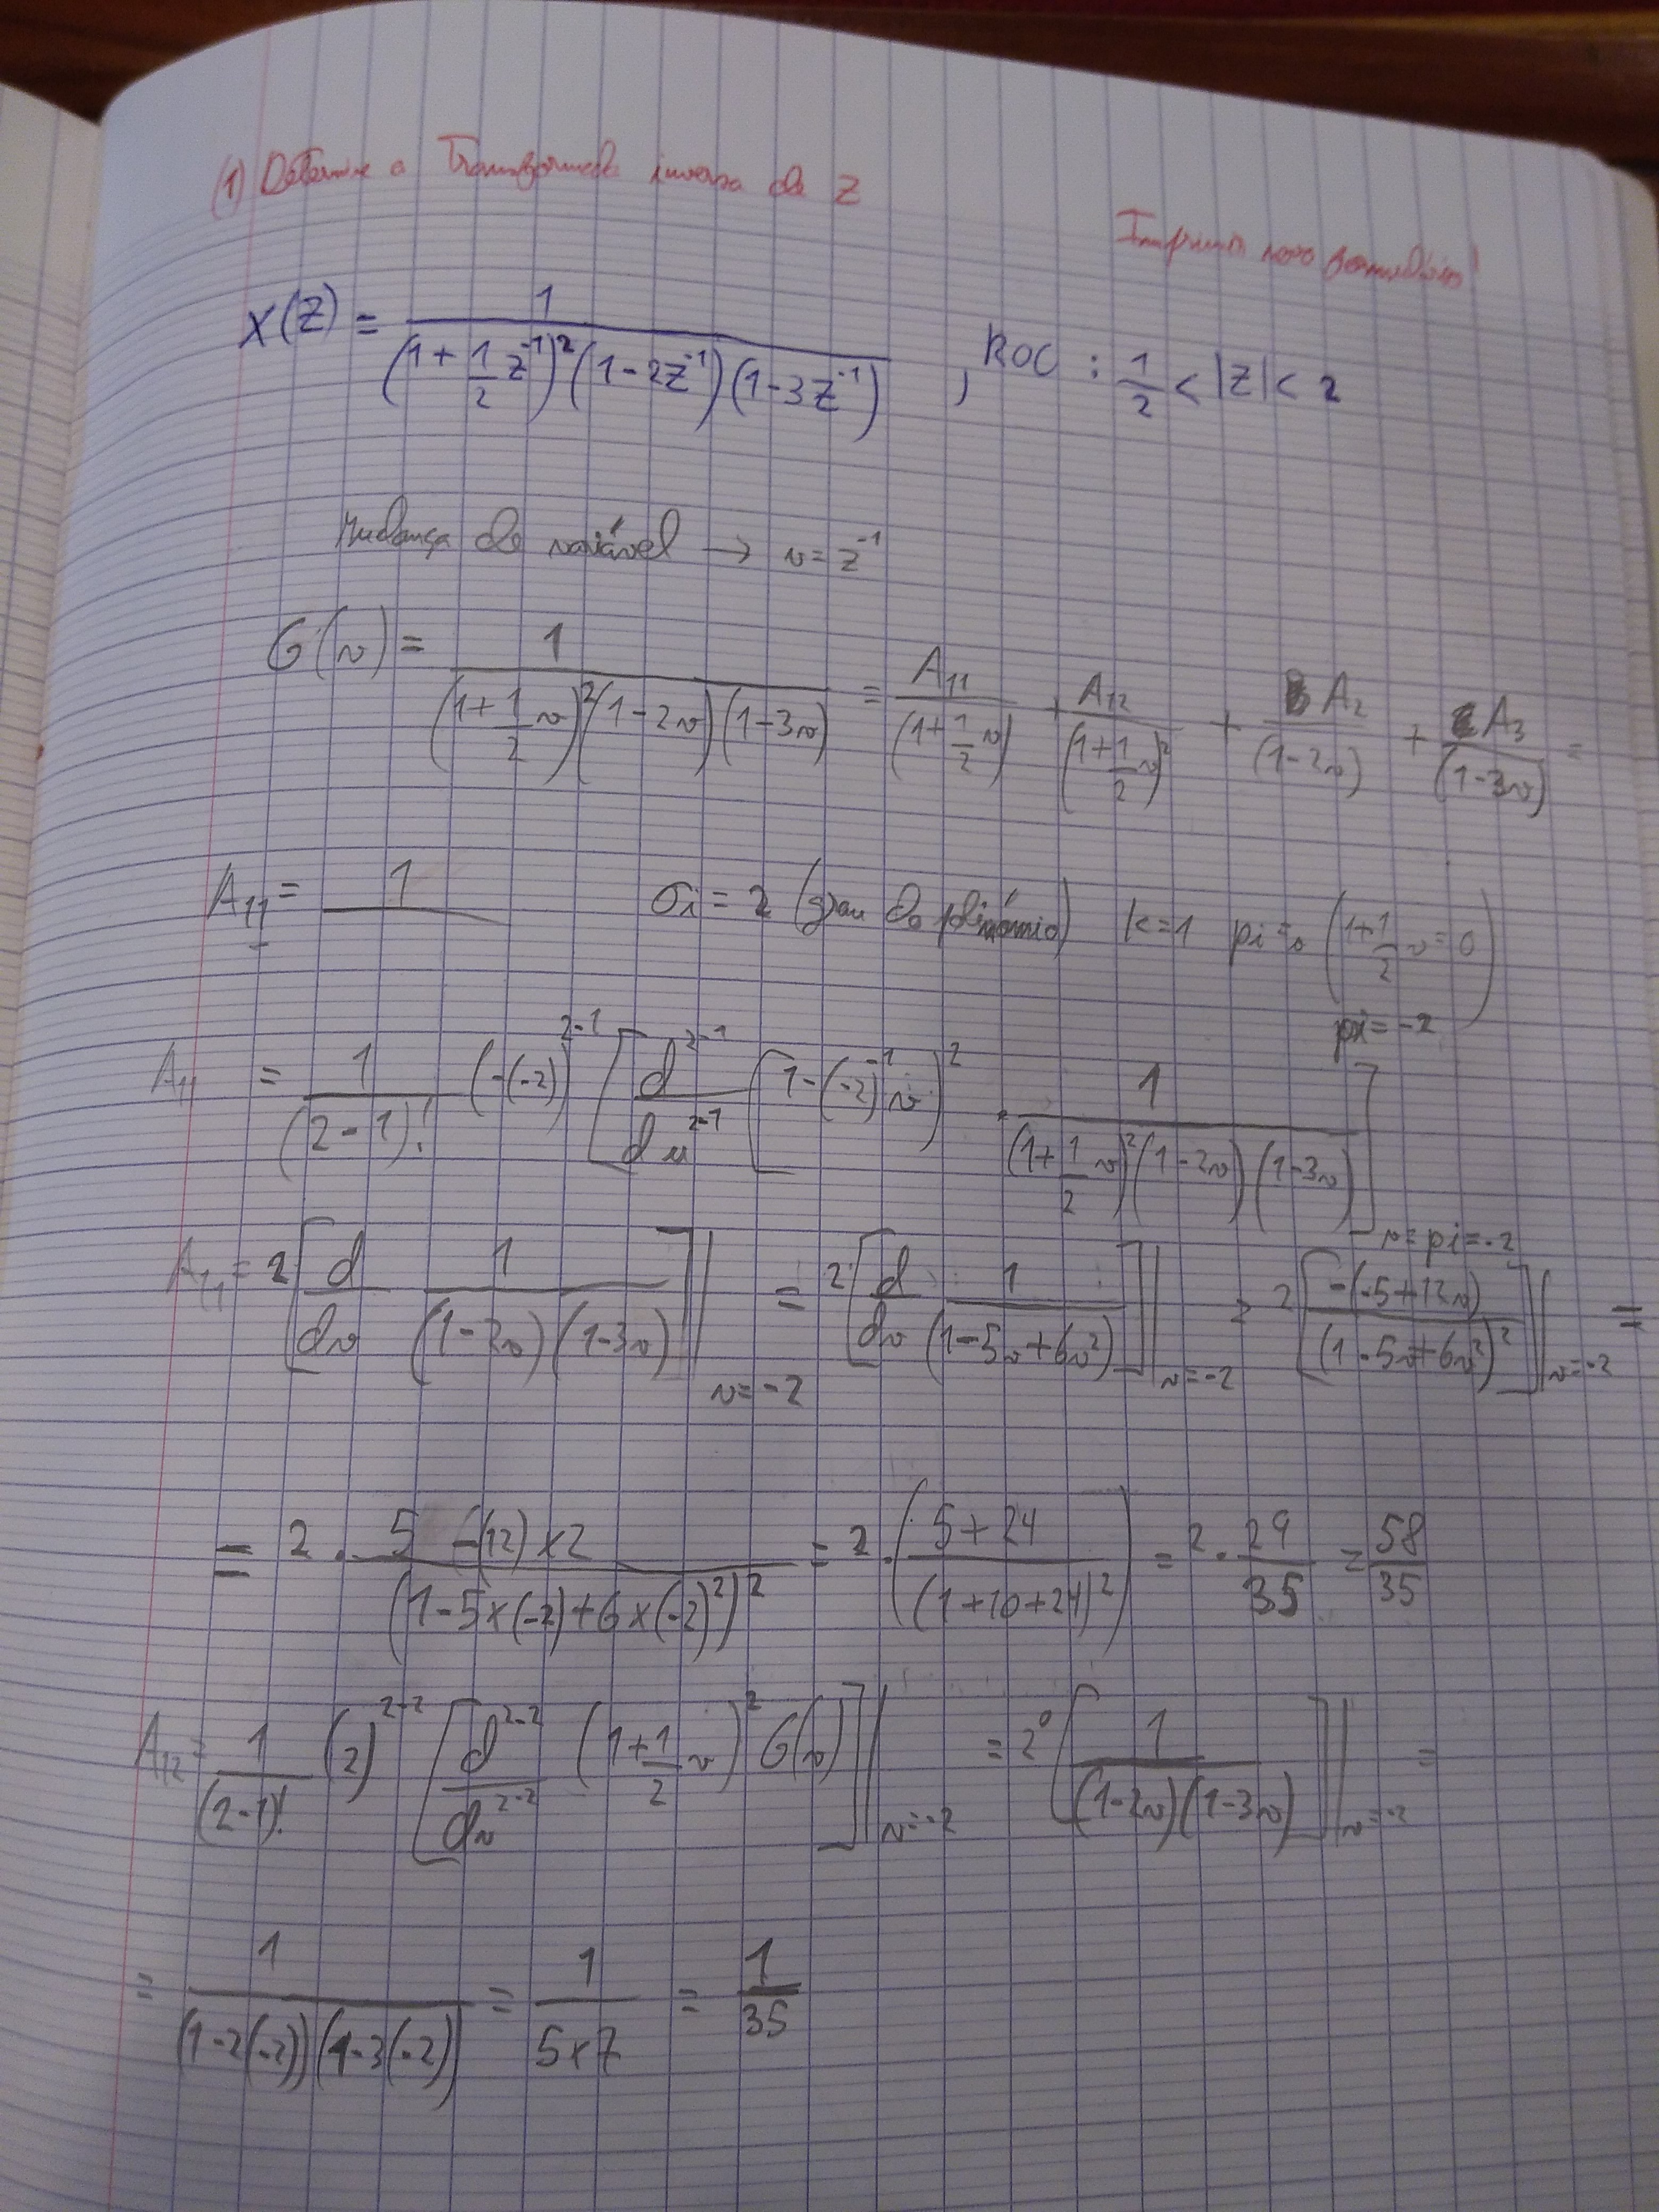 (1) Determine a Transformada inversa de Z
Imprimir novo formulário!
X(Z) = 1 / ((1 + 1/2 z^-1)^2 (1 - 2z^-1)(1 - 3z^-1)) , ROC : 1/2 < |Z| < 2
Mudança de variável → v = z^-1
G(v) = 1 / ((1 + 1/2 v)^2 (1 - 2v)(1 - 3v)) = A11 / (1 + 1/2 v) + A12 / (1 + 1/2 v)^2 + A2 / (1 - 2v) + A3 / (1 - 3v) =
A11 = 1 / σi = 2 (grau do polinómio) k = 1 pi = (1 + 1/2 v = 0)
pi = -2
A11 = 1 / (2 - 1)! (-(-2))^2-1 [d^2-1 / du^2-1 [1 - (-2)^-1 v)^2 . 1 / ((1 + 1/2 v)^2 (1 - 2v)(1 - 3v))] v = pi = -2
A11 = 2 [d/dv 1 / ((1 - 2v)(1 - 3v))] | v = -2 = 2 [d/dv 1 / (1 - 5v + 6v^2)] | v = -2 = 2 [-(-5 + 12v) / (1 - 5v + 6v^2)^2] | v = -2 =
= 2 . 5 -(12) x 2 / (1 - 5 x (-2) + 6 x (-2)^2)^2 = 2 . (5 + 24 / (1 + 10 + 24)^2) = 2 . 29/35 = 58/35
A12 = 1 / (2 - 1)! (2)^2-2 [d^2-2 / dv^2-2 (1 + 1/2 v)^2 G(v)] | v = -2 = 2^0 [1 / ((1 - 2v)(1 - 3v))] | v = -2 =
= 1 / ((1 - 2(-2))(1 - 3(-2)) = 1 / 5 x 7 = 1/35